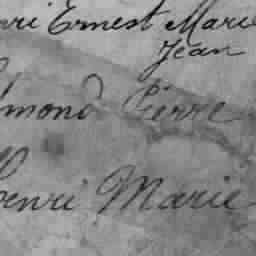 nri Ernest Marie
Jean
dmond Pierre
Henri Marie